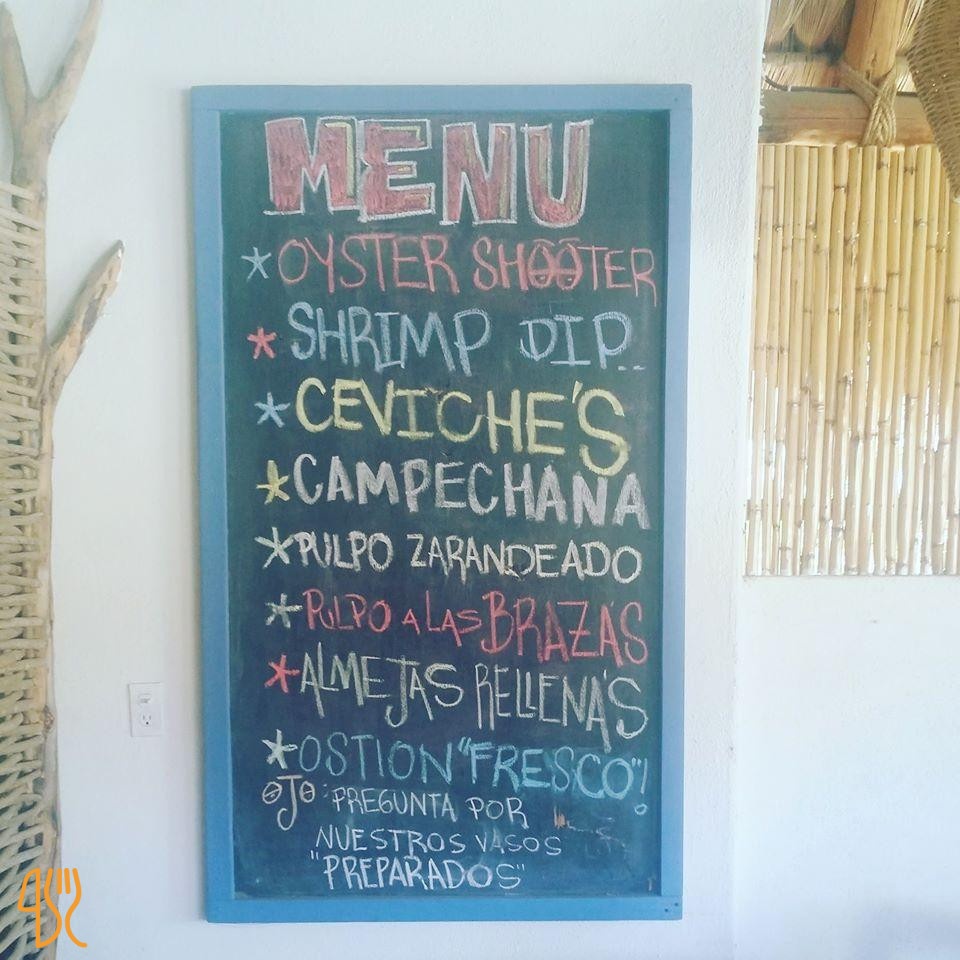 MENU
* OYSTER SHÔÔTER
* SHRIMP DIP..
* CEVICHE'S
* CAMPECHANA
* PULPO ZARANDEADO
* PULPO A LAS BRAZAS
* ALMEJAS RELLENA'S
* OSTION "FRESCO"!
OJO: PREGUNTA POR
NUESTROS VASOS
"PREPARADOS"